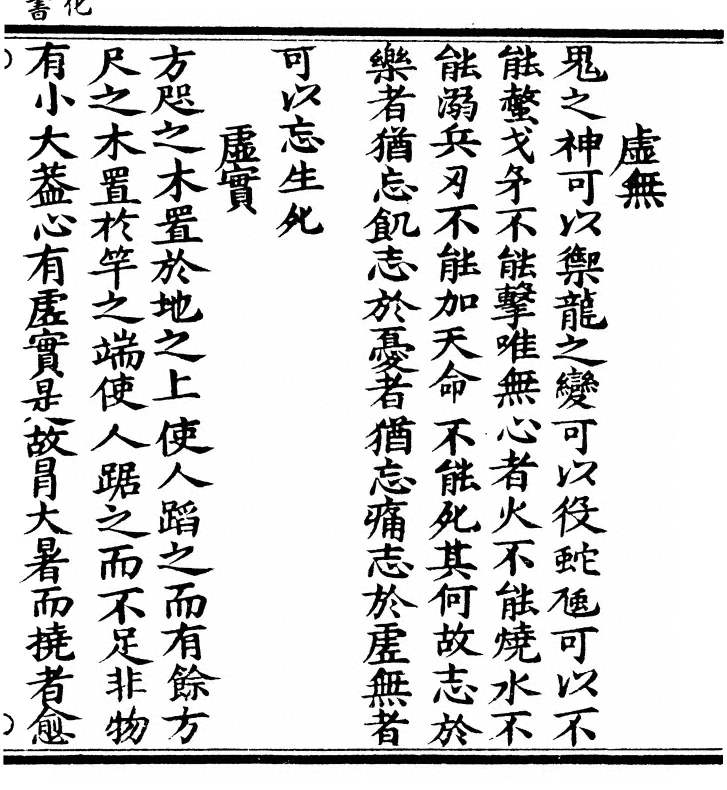 化書
虛無
鬼之神可以禦龍之變可以役蛇虺可以不
能螫戈矛不能擊唯無心者火不能燒水不
能溺兵刃不能加天命不能死其何故志於
樂者猶忘飢志於憂者猶忘痛志於虛無者
可以忘生死
虛實
方咫之木置於地之上使人蹈之而有餘方
尺之木置於竿之端使人踞之而不足非物
有小大葢心有虛實是故冐大暑而撓者愈